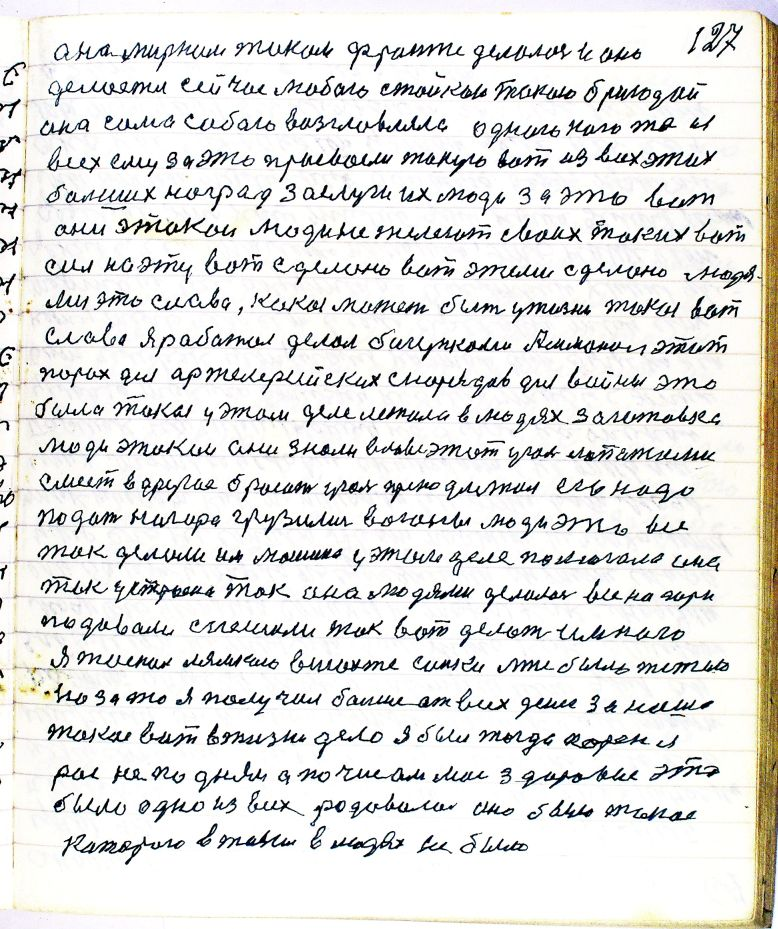 127
она мирным таком фронте делолоя и оно
делоетя сейчас любого стойкою такою бригодой
она сама собаю возглавляла одного кого то и
всех ему за это присвоели такую вот из всех этих
балших наград заслуги их люди за это вот
они этакаи люди не жалеют своих таких вот
сил на эту вот сделано вот этими сделано людя-
ми это слава, какая может быт у жизни такая вот
слава я работал делал бегунками Аммонал этот
порох дла артелерийских снарядов для войны это
была такая у этом деле летала в людях заготовка
люди этакаи они знали этот угал лопатами
смест в другое бросат угал надо
подат нагара грузили вагоны люди это все
так делали им машина у этом деле помогала она
так устроена так она людями делалоя все на гори
подовали спешили так вот делат и много
я таскал лямкаю мне было тяжело
но за то я получал балше от всех дене за наше
такое вот в жизни дело я был тогда
рос не по дням а по чисам мое здоровие это
было одно из всех родовалоя оно было такое
каторого в жизни в людях не было